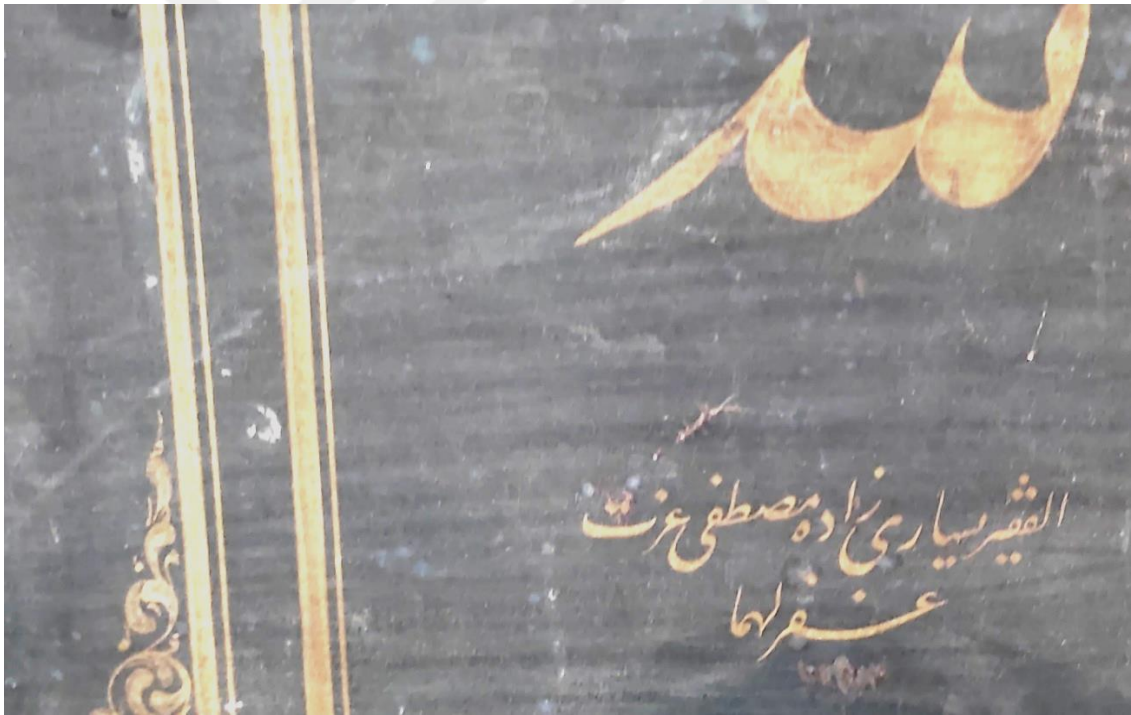 الفقير يساري زاده مصطفى عزت
غفر لهما